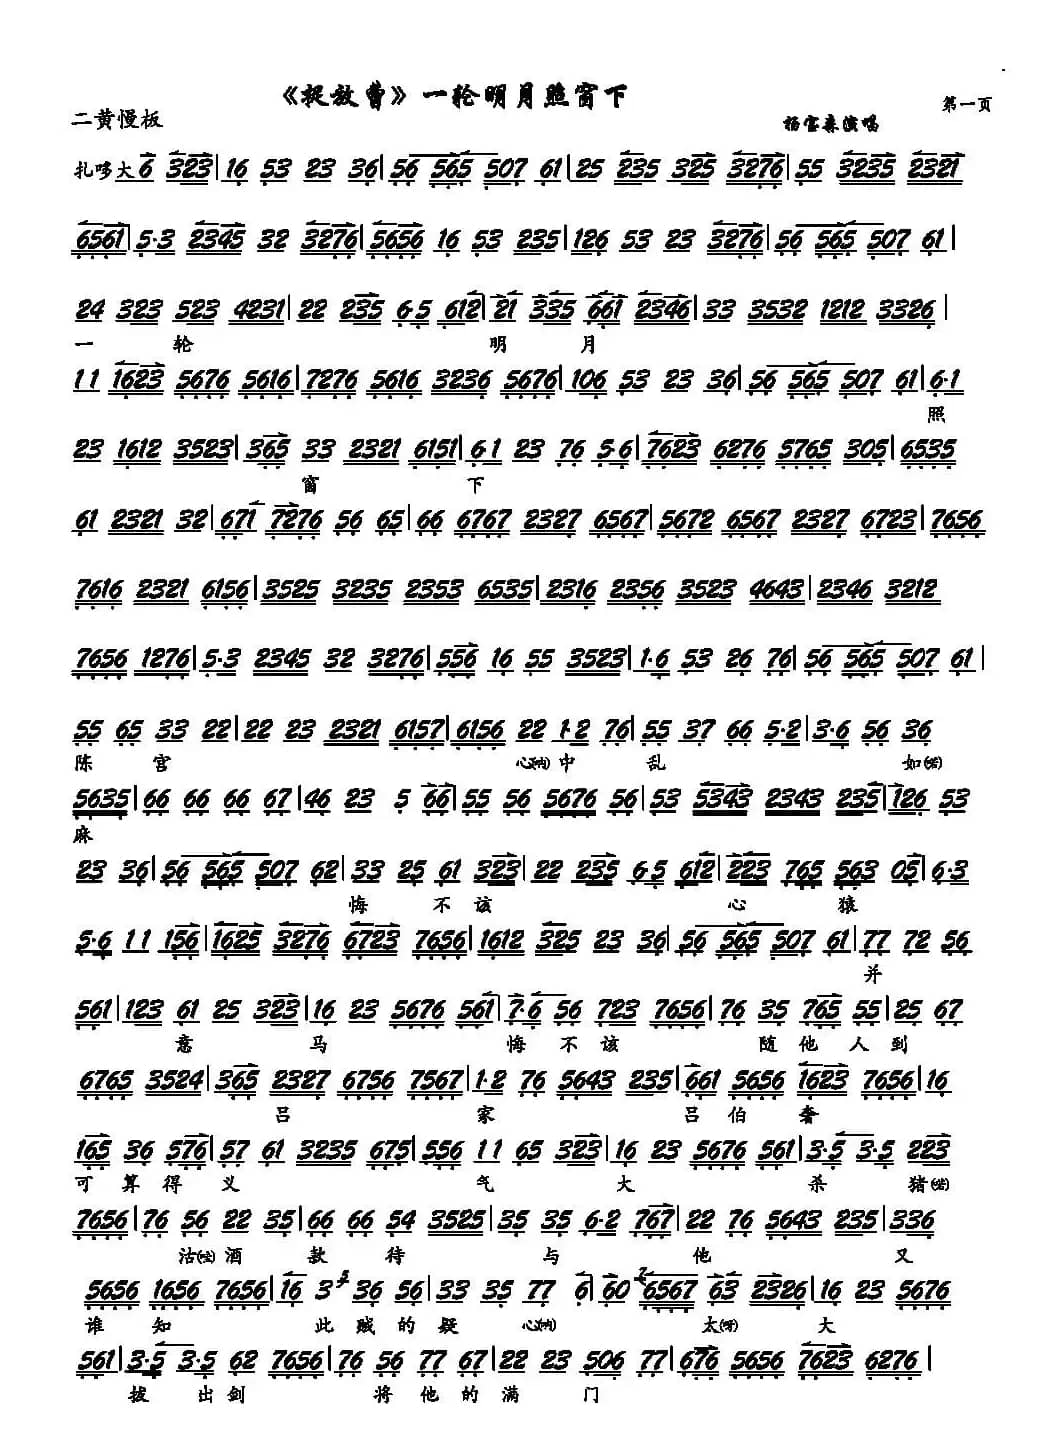 《捉放曹》一轮明月照窗下
第一页
二黄慢板
杨宝森演唱
扎哆大6 323|16 53 23 36|56 565 507 61|25 235 325 3276|55 3235 2321
6561|5·3 2345 32 3276|5656 16 53 235|126 53 23 3276|56 565 507 61|
24 323 523 4231|22 235 6·5 612|21 335 661 2346|33 3532 1212 3326|
一 轮 明 月
11 1623 5676 5616|7276 5616 3236 5676|106 53 23 36|56 565 507 61|6·1
照
23 1612 3523|365 33 2321 6151|6·1 23 76 5·6|7623 6276 5765 305|6535
窗 下
61 2321 32|671 7276 56 65|66 6767 2327 6567|5672 6567 2327 6723|7656
7616 2321 6156|3525 3235 2353 6535|2316 2356 3523 4643|2346 3212
7656 1276|5·3 2345 32 3276|556 16 55 3523|1·6 53 26 76|56 565 507 61|
55 65 33 22|22 23 2321 6157|6156 22 1·2 76|55 37 66 5·2|3·6 56 36
陈 宫 心(呐)中 乱 如(若)
5635|66 66 66 67|46 23 5 66|55 56 5676 56|53 5343 2343 235|126 53
麻
23 36|56 565 507 62|33 25 61 323|22 235 6·5 612|223 765 563 05|6·3
悔 不 该 心 猿
5·6 11 156|1625 3276 6723 7656|1612 325 23 36|56 565 507 61|77 72 56
并
561|123 61 25 323|16 23 5676 561|7·6 56 723 7656|76 35 765 55|25 67
意 马 悔 不 该 随 他 人 到
6765 3524|365 2327 6756 7567|1·2 76 5643 235|661 5656 1623 7656|16
吕 家 吕 伯 奢
165 36 576|57 61 3235 675|556 11 65 323|16 23 5676 561|3·5 3·5 223
可 算 得 义 气 大 杀 猪(若)
7656|76 56 22 35|66 66 54 3525|35 35 6·2 767|22 76 5643 235|336
沽(哇)酒 款 待 与 他 又
5656 1656 7656|16 3 5 36 56|33 35 77 6|60 7 6567 63 2326|16 23 5676
谁 知 此 贼 的 疑 心(呐) 太(呀) 大
561|3·5 3·5 62 7656|76 56 77 67|22 23 506 77|676 5656 7623 6276|
拔 出 剑 将 他 的 满 门